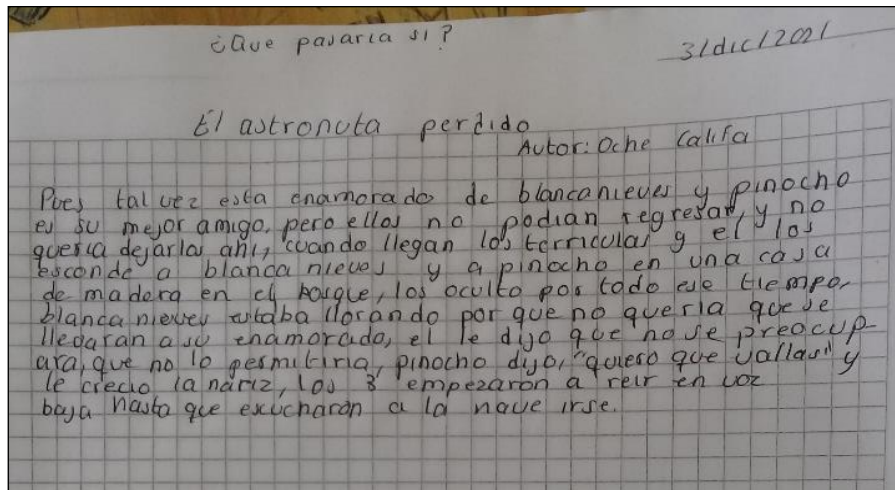 ¿Que pasaria si?
31dic12021
El astronota perdido
Autor: Oche Califa
Pues tal vez esta enamorado de blancanieves y pinocho
es su mejor amigo, pero ellos no podian regresar, y no
queria dejarlos ahi, cuando llegan los terriculas y el los
esconde a blanca nieves y a pinocho en una casa
de madera en el bosque, los oculto por todo ese tiempo,
blanca nieves estaba llorando por que no queria que se
llegaran a su enamorado, el le dijo que no se preocup-
ara, que no lo permitiria, pinocho dijo, "quiero que vallas" y
le crecio la nariz, los 3 empezaron a reir en voz
baja hasta que escucharon a la nave irse.